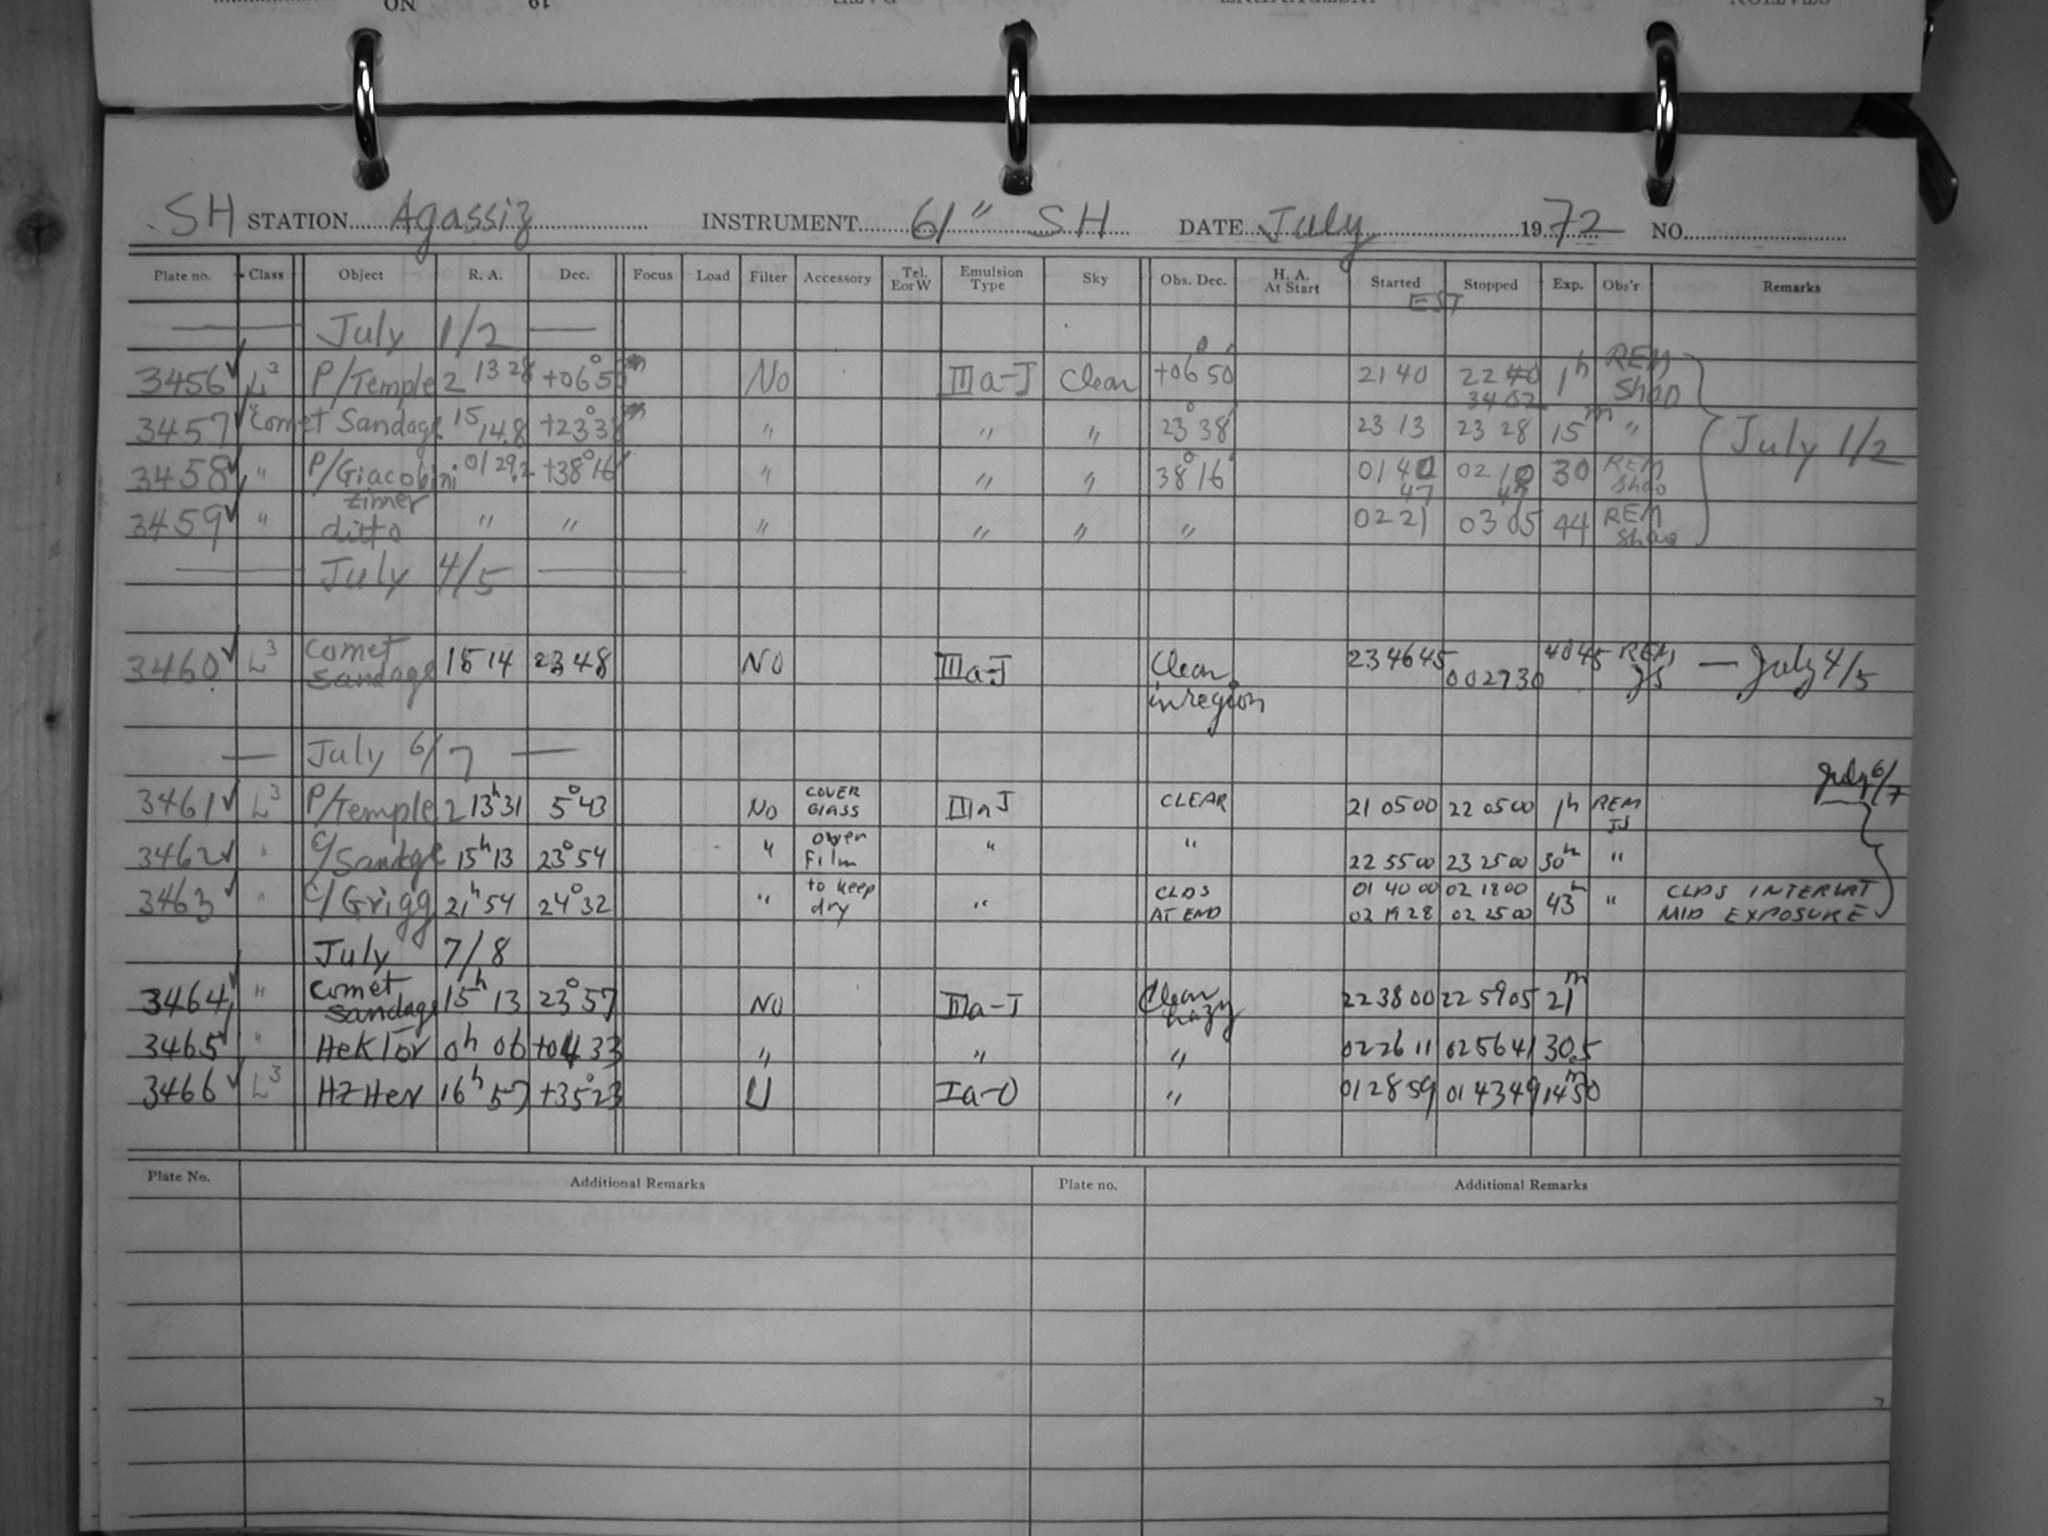 SH STATION Agassiz INSTRUMENT 61" SH DATE July 1972 NO.
Plate no. Class Object R. A. Dec. Focus Load Filter Accessory Tel. E or W Emulsion Type Sky Obs. Dec. H. A. At Start Started Stopped Exp. Obs'r Remarks
EST
— July 1/2 —
3456 ✓ L3 P/Temple 2 13 28 +06°50' No IIIa-J Clear +06°50' 21 40 22 40 1h REM
34 02 Shao
3457 ✓ " Comet Sandage 15 14.8 +23°38' " " " 23°38' 23 13 23 28 15m " July 1/2
3458 ✓ " P/Giacobini 01 29.2 +38°16' " " " 38°16' 01 40 02 10 30 REM
Zinner 47 47 Shao
3459 ✓ " ditto " " " " " " 02 21 03 05 44 REM
Shao
— July 4/5 —
3460 ✓ L3 Comet Sandage 15 14 23 48 NO IIIa-J Clear in region 23 46 45 00 27 30 40 45 REM JS — July 4/5
— July 6/7 —
July 6/7
3461 ✓ L3 P/Temple 2 13h31 5°43 No COVER GLASS IIIaJ CLEAR 21 05 00 22 05 00 1h REM JS
3462 ✓ " C/Sandage 15h13 23°54 " over film " " 22 55 00 23 25 00 30m "
3463 ✓ " C/Grigg 21h54 24°32 " to keep dry " CLDS AT END 01 40 00 02 18 00 43m " CLDS INTERUPT
02 19 28 02 25 00 MID EXPOSURE
July 7/8
3464 ✓ " Comet Sandage 15h 13 23°57 NO IIIa-J Clear hazy 22 38 00 22 59 05 21m
3465 ✓ " HeKTor 0h 06 +04 33 " " " 02 26 11 02 56 41 30.5
3466 ✓ L3 HZ Her 16h 57 +35°23 U Ia-O " 01 28 59 01 43 49 14m50
Plate No. Additional Remarks Plate no. Additional Remarks